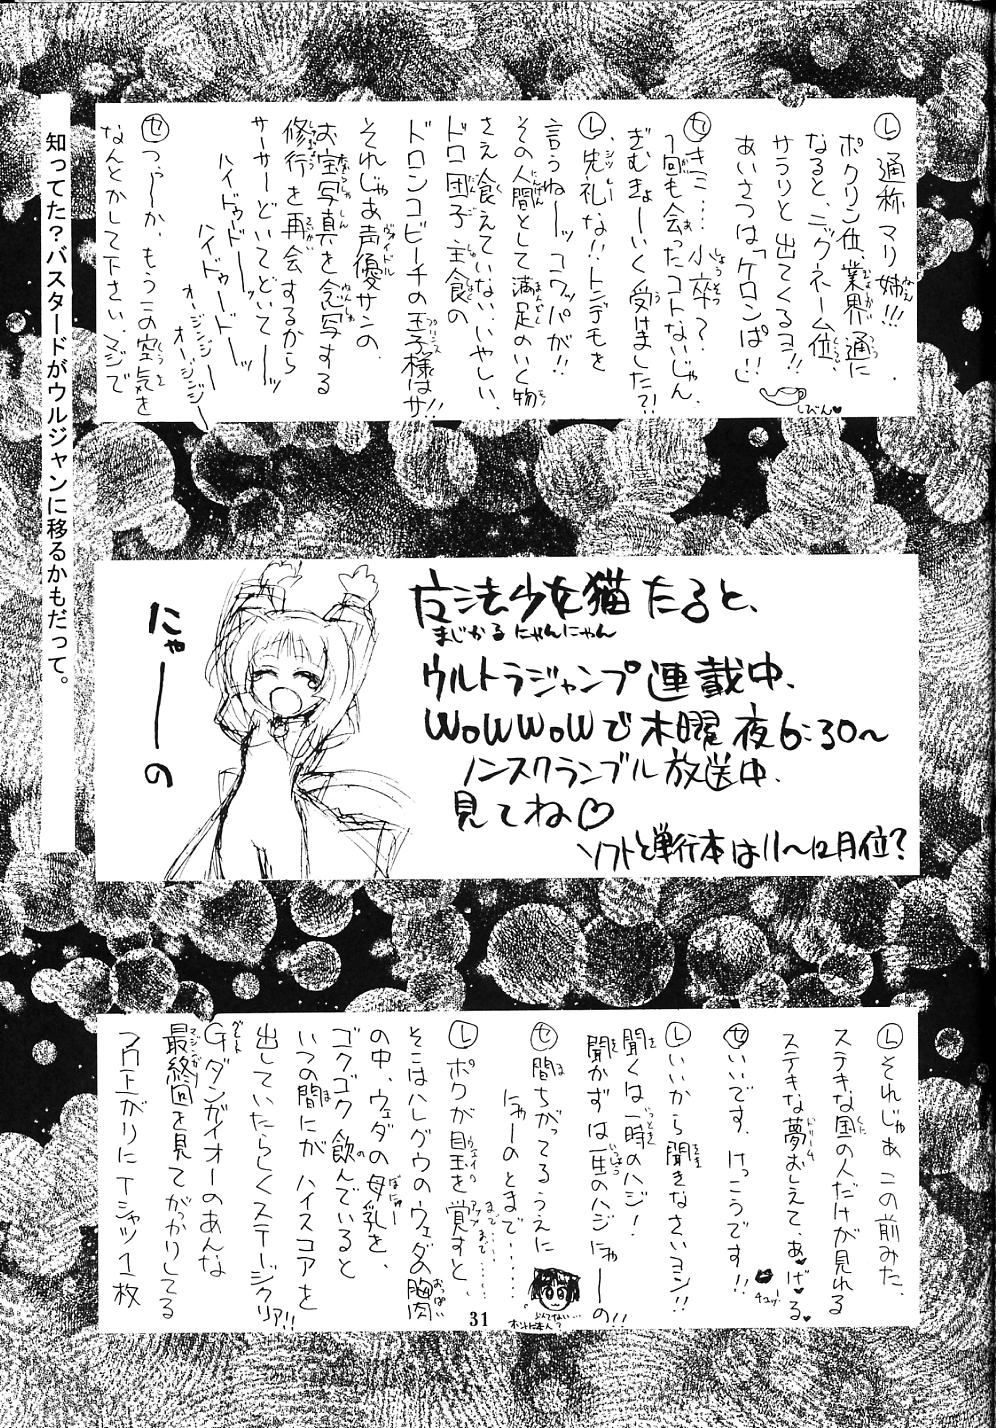 Ⓛ通称マリ姉!!!
ポクリン位業界通に
なると、ニックネーム位、
サラリと出てくるヨ!!
あいさつは「ケロンぱ!!」
しびん♥
㋝き… 小卒?
1回も会ったコトないじゃん
ぎむきょーいく受けました?!
Ⓛ失礼な!!トンデモを
言うねーッコワッパが!!
その人間として満足のいく物
さえ食えていない、いやしい、
ドロ団子主食の
ドロンコビーチの王子様はサ!!
それじゃあ声優サンの、
お宝写真を念写する
修行を再会するから
サーサーどいてどいてーッ
ハイドゥードーーッ
ハイドゥードードーッ
オージンジー
オージンジー
㋝つぅーか、もうこの空気を
なんとかして下さい、マジで
知ってた?バスタードがウルジャンに移るかもだって。
魔法少女猫たると、
まじかる にゃんにゃん
ウルトラジャンプ連載中、
WoWWoWで木曜夜6:30~
ノンスクランブル放送中、
見てね♡
ソフトと単行本は11~12月位?
にゃーーの
Ⓛそれじゃあこの前みた、
ステキな国の人だけが見れる
ステキな夢おしえて、あ♥げ♥る♥
チュッ!
㋝いいです、けっこうです!!
Ⓛいいから聞きなさいヨン!!
聞くは一時のハジ!
聞かずは一生のハジにゃーーの!!
㋝間ちがってるうえに
にゃーのとまで……
Ⓛポクが目玉を覚すと、
そこはハレグウのウェダの胸肉
の中、ウェダの母乳を、
ゴクゴク飲んでいると
いつの間にかハイスコアを
出していたらしくステージクリア!!
Gダンガイオーのあんな
最終回を見てがかりしてる
フロ上がりにTシャツ1枚
31